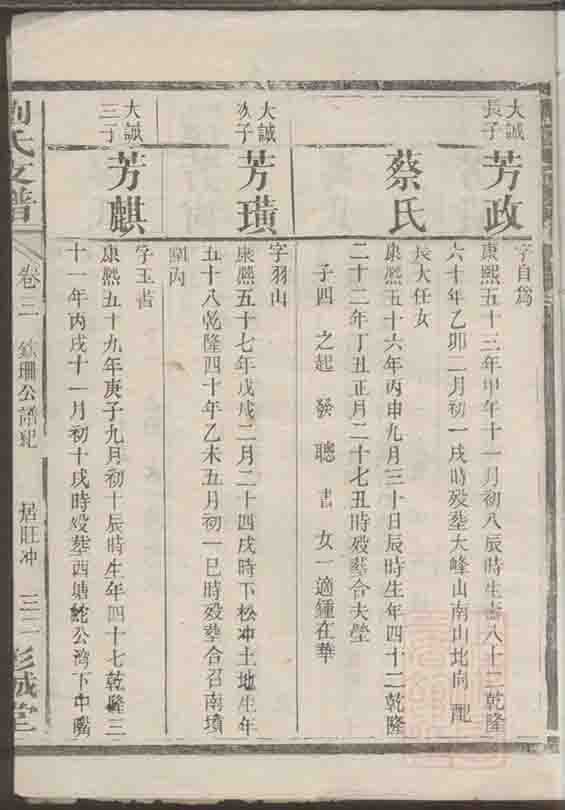 大誠長子
芳政
字自為
康熙五十三年甲午十一月初八辰時生壽八十二乾隆
六十年乙卯二月初一戌時歿塟大峰山南山北向 配
蔡氏
長大任女
康熙五十六年丙申九月三十日辰時生年四十二乾隆
二十二年丁丑正月二十七丑時歿塟合夫塋
子四 之起 發 聰 書 女一適鍾在華
大誠次子
芳璜
字羽山
康熙五十七年戊戌二月二十四戌時下松冲土地生年
五十八乾隆四十年乙未五月初一巳時歿塟合召南墳
圍內
大誠三子
芳麒
字玉書
康熙五十九年庚子九月初十辰時生年四十七乾隆三
十一年丙戌十一月初十戌時歿塟西塘蛇公湾下中嘴
刘氏支譜
卷三
公譜紀
居旺冲
三二
彭城堂